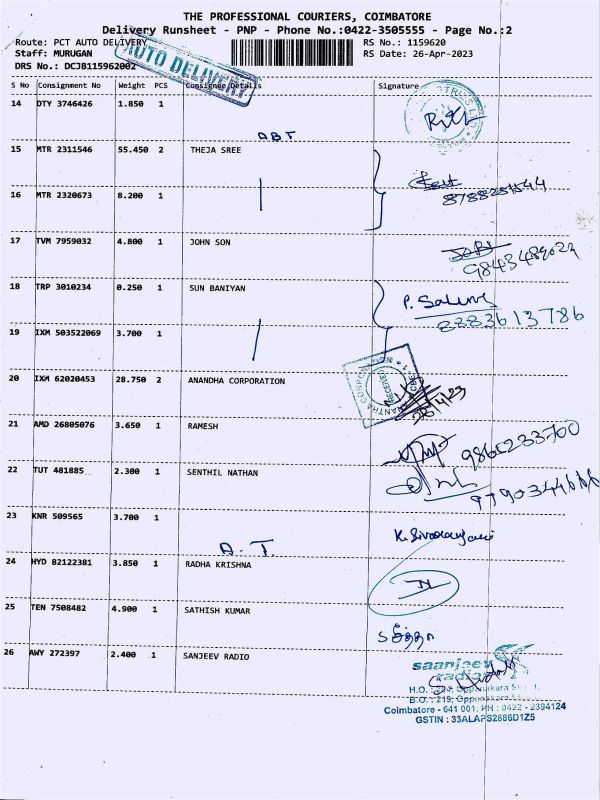 THE PROFESSIONAL COURIERS, COIMBATORE
Delivery Runsheet - PNP - Phone No.:0422-3505555 - Page No.:2
Route: PCT AUTO DELIVERY RS No.: 1159620
Staff: MURUGAN RS Date: 26-Apr-2023
DRS No.: DCJB115962002
AUTO DELIVERY
S No Consignment No Weight PCS Consignee/Details Signature
14 DTY 3746426 1.850 1
ABT
15 MTR 2311546 55.450 2 THEJA SREE
16 MTR 2320673 8.200 1 8788251544
17 TVM 7959032 4.800 1 JOHN SON
18 TRP 3010234 0.250 1 SUN BANIYAN P.
8883613786
19 IXM 503522069 3.700 1
20 IXM 62020453 28.750 2 ANANDHA CORPORATION RECEIVED
26/4/23
21 AMD 26805076 3.650 1 RAMESH 9865233700
22 TUT 481885 2.300 1 SENTHIL NATHAN
23 KNR 509565 3.700 1 K. Sivaranjani
A.T
24 HYD 82122381 3.850 1 RADHA KRISHNA
25 TEN 7508482 4.900 1 SATHISH KUMAR
26 AWY 272397 2.400 1 SANJEEV RADIO
saanjeev
radios
H.O. : 224, Oppanakara
B.O. : 219, Oppanakara
Coimbatore - 641 001. PH : 0422 - 2394124
GSTIN : 33ALAPS2886D1Z5